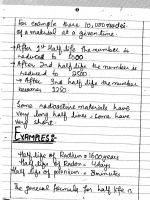 for example there 10,000 nuclei
of a material at a given time.
→ After 1st Half life the number is
reduced to 5000
→ After 2nd half life the number is
reduced to 2500
→ After 3rd half life the number
becomes 1250.
Some radioactive materials have
very long half lives & some have
very short
EXAMPLES:-
Half life of Radium = 1600 years
Half life of Radon = 4 days
Half life of polonium = 3 minutes
The general formula for half life is